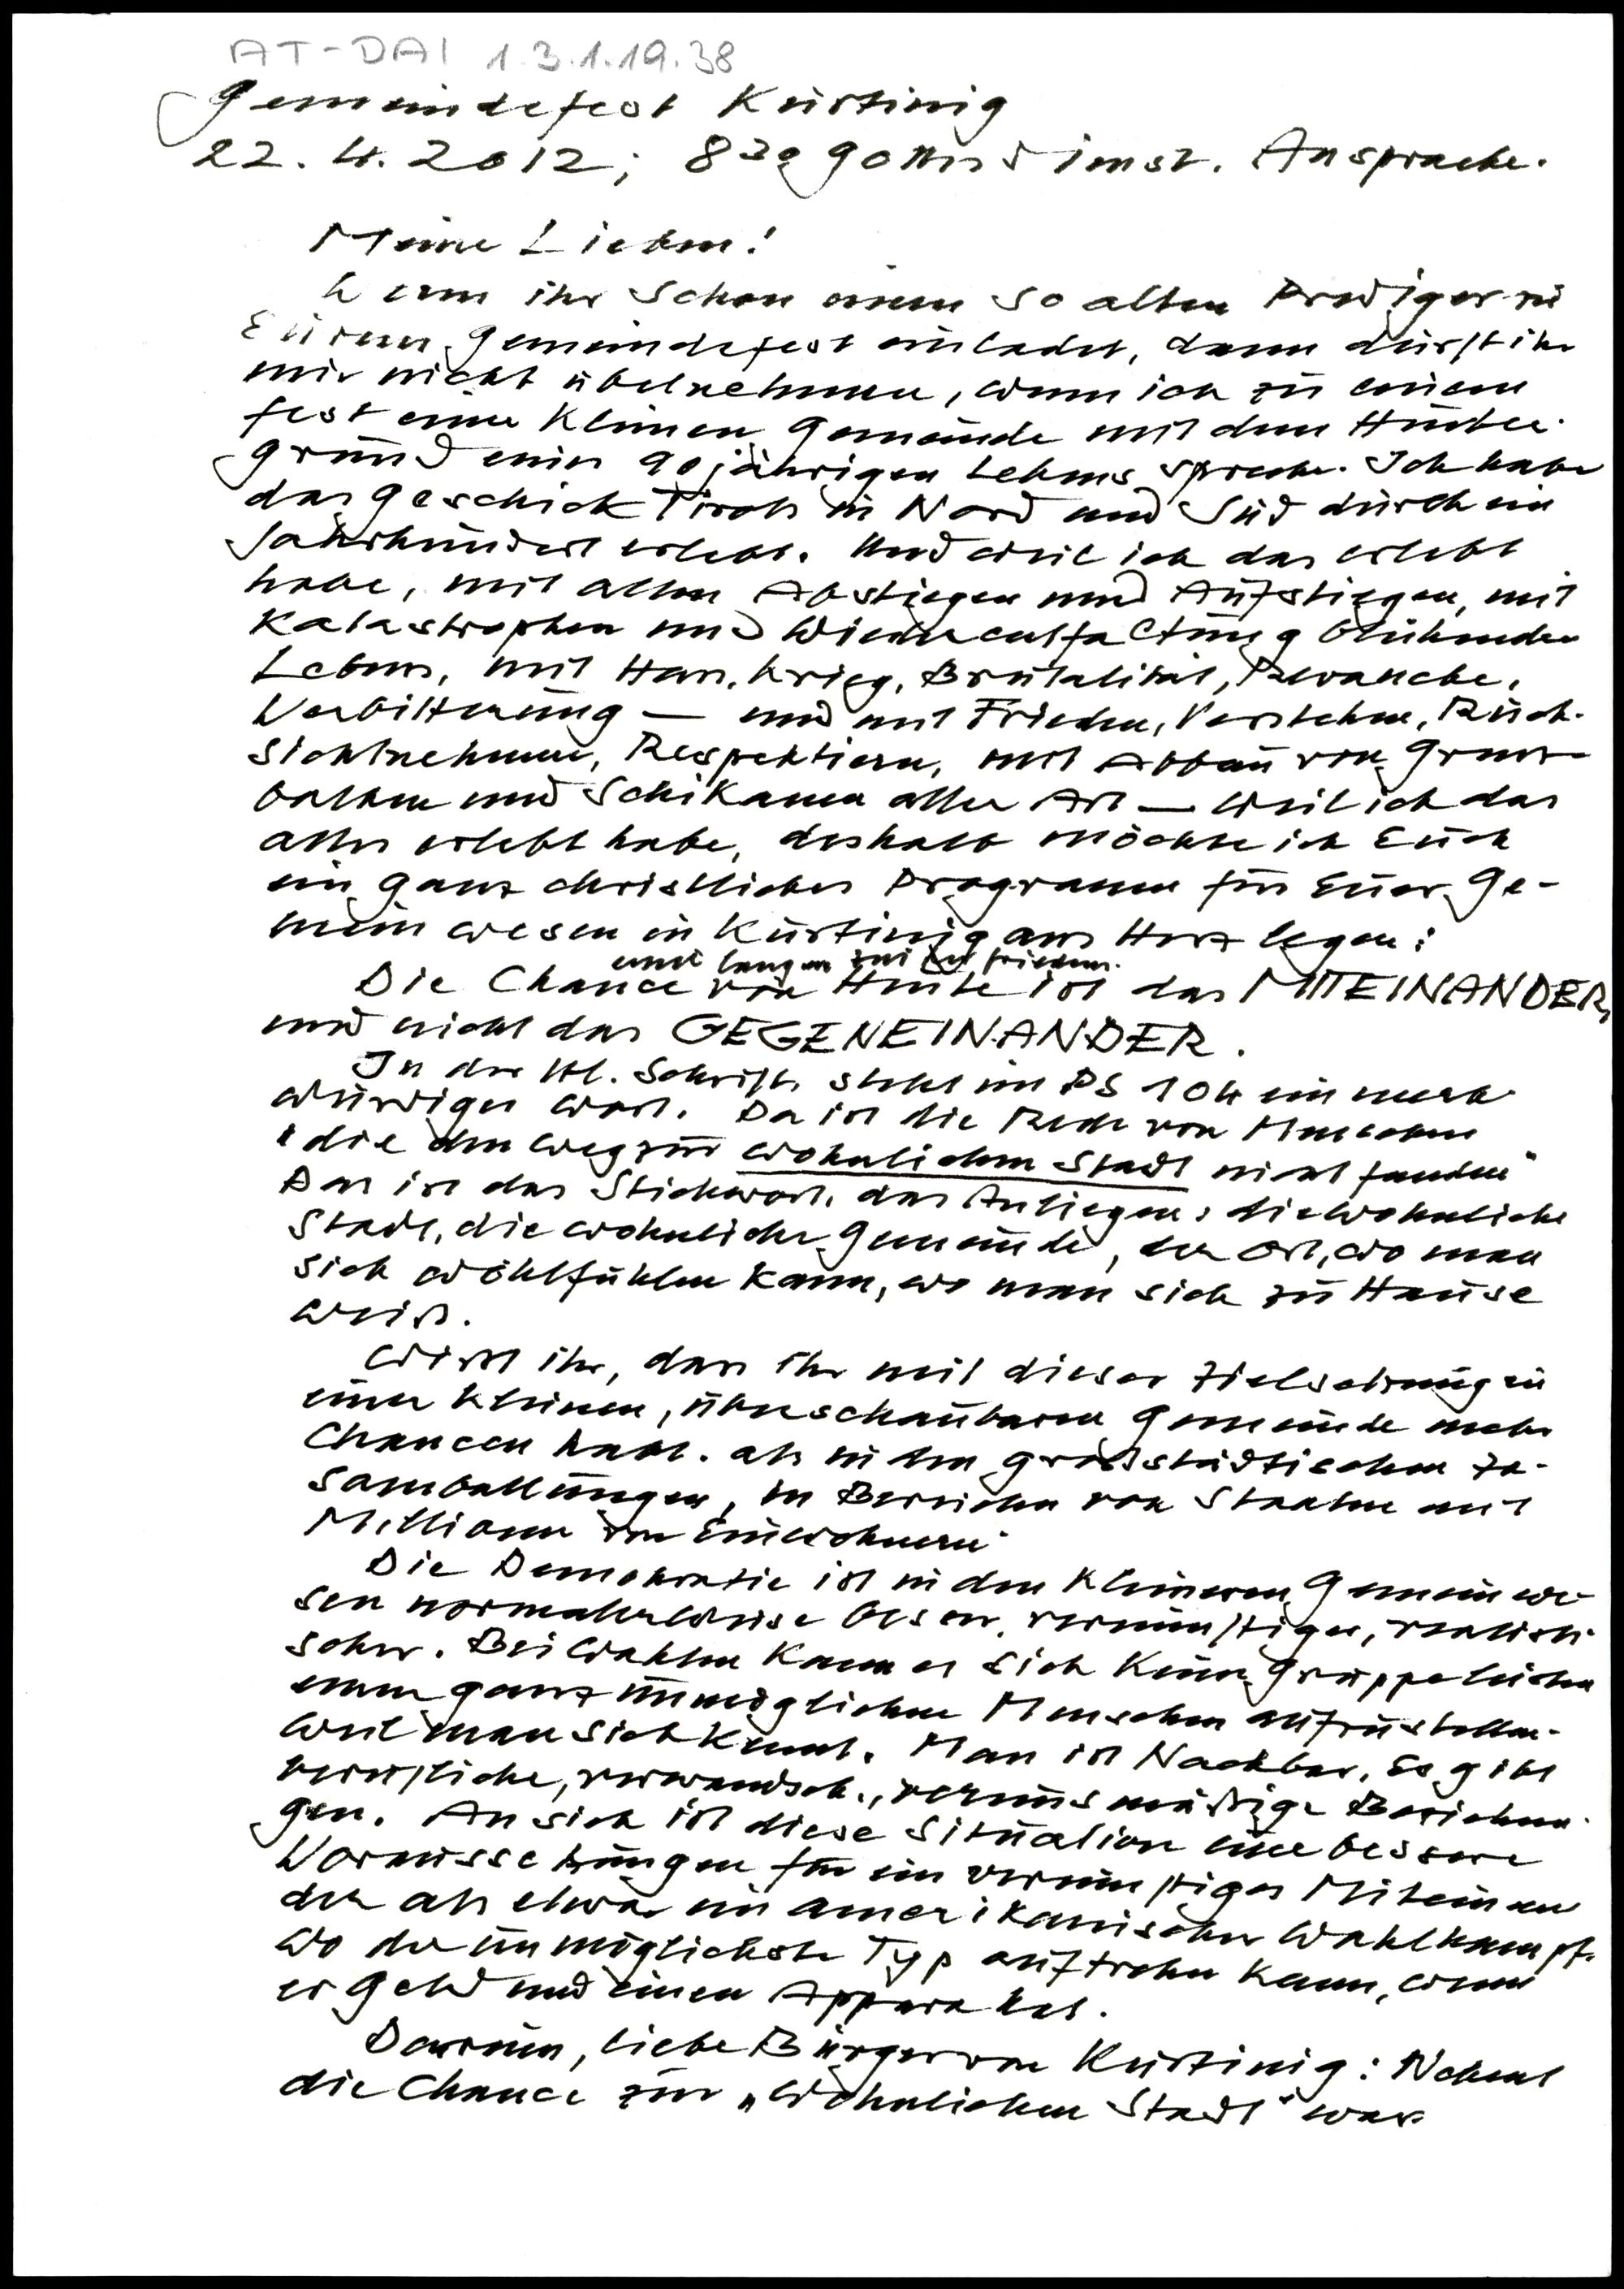 AT-DAI 1.3.1.19.38
Gemeindefest Kurtinig
22. 4. 2012; 8³⁰ Gottesdienst. Ansprache.
Meine Lieben!
Wenn ihr schon einen so alten Prediger zu
Eurem Gemeindefest einladet, dann dürft ihr
mir nicht übelnehmen, wenn ich zu einem
Fest einer kleinen Gemeinde mit dem Hinter-
grund eines 90jährigen Lebens spreche. Ich habe
das Geschick Tirols in Nord und Süd durch ein
Jahrhundert erlebt. Und weil ich das erlebt
habe, mit allen Abstiegen und Aufstiegen, mit
Katastrophen und Wiederentfaltung blühenden
Lebens, mit Hass, Krieg, Brutalität, Revanche,
Verbitterung – und mit Frieden, Verstehen, Rück-
sichtnehmen, Respektieren, mit Abbau von Grenz-
balken und Schikanen aller Art – weil ich das
alles erlebt habe, deshalb möchte ich Euch
ein ganz christliches Programm für Euer Ge-
meinwesen in Kurtinig ans Herz legen:
einer langen Zeit des Friedens.
Die Chance von Heute ist das MITEINANDER,
und nicht das GEGENEINANDER.
In der Hl. Schrift steht im PS 104 ein merk-
würdiges Wort. Da ist die Rede von Menschen
"die den Weg zur wohnlichen Stadt nicht fanden"
Das ist das Stichwort, das Anliegen: die wohnliche
Stadt, die wohnliche Gemeinde, der Ort, wo man
sich wohlfühlen kann, wo man sich zu Hause
weiß.
Wisst ihr, dass ihr mit dieser Zielsetzung in
einer kleinen, überschaubaren Gemeinde mehr
Chancen habt. als in den großstädtischen Zu-
samballungen, in Bereichen von Staaten mit
Millionen von Einwohnern.
Die Demokratie ist in den kleineren Gemeinwe-
sen normalerweise besser, vernünftiger, realisti-
scher. Bei Wahlen kann es sich keine Gruppe leisten
einen ganz unmöglichen Menschen aufzustellen.
weil man sich kennt. Man ist Nachbar, Es gibt
berufliche, verwandsch., vereinsmäßige Beziehun-
gen. An sich ist diese Situation eine bessere
Voraussetzungen für ein vernünftiges Miteinan
der als etwa ein amerikanischer Wahlkampf.
wo der unmöglichste Typ auftreten kann, wenn
er Geld und einen Apparat hat.
Darum, liebe Bürger von Kurtinig: Nehmt
die Chance zur „wohnlichen Stadt" war